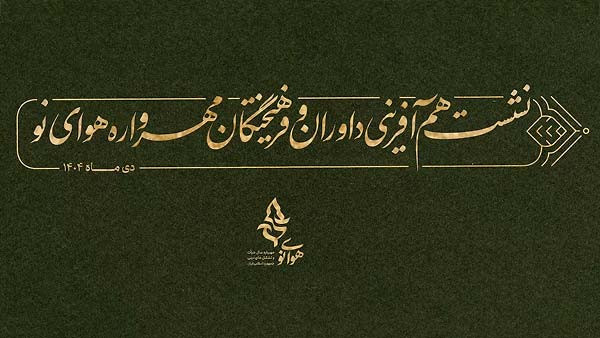 نشست هم‌آفرینی داوران و فرهیختگان مهرواره هوای نو
دی ماه ۱۴۰۴
هوای نو